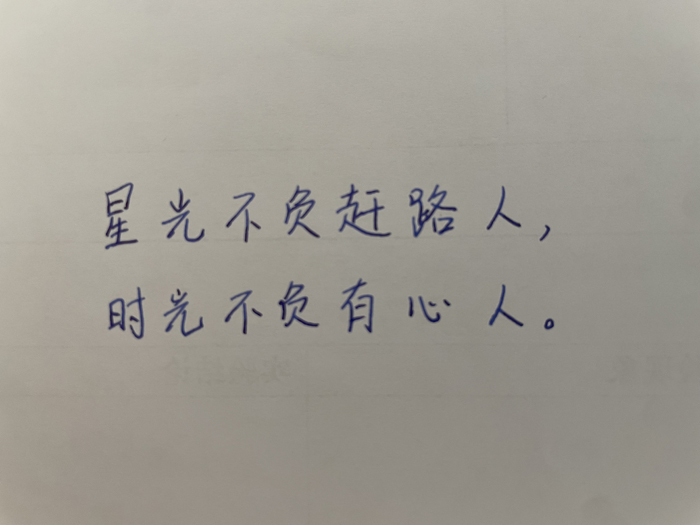 星光不负赶路人，
时光不负有心人。